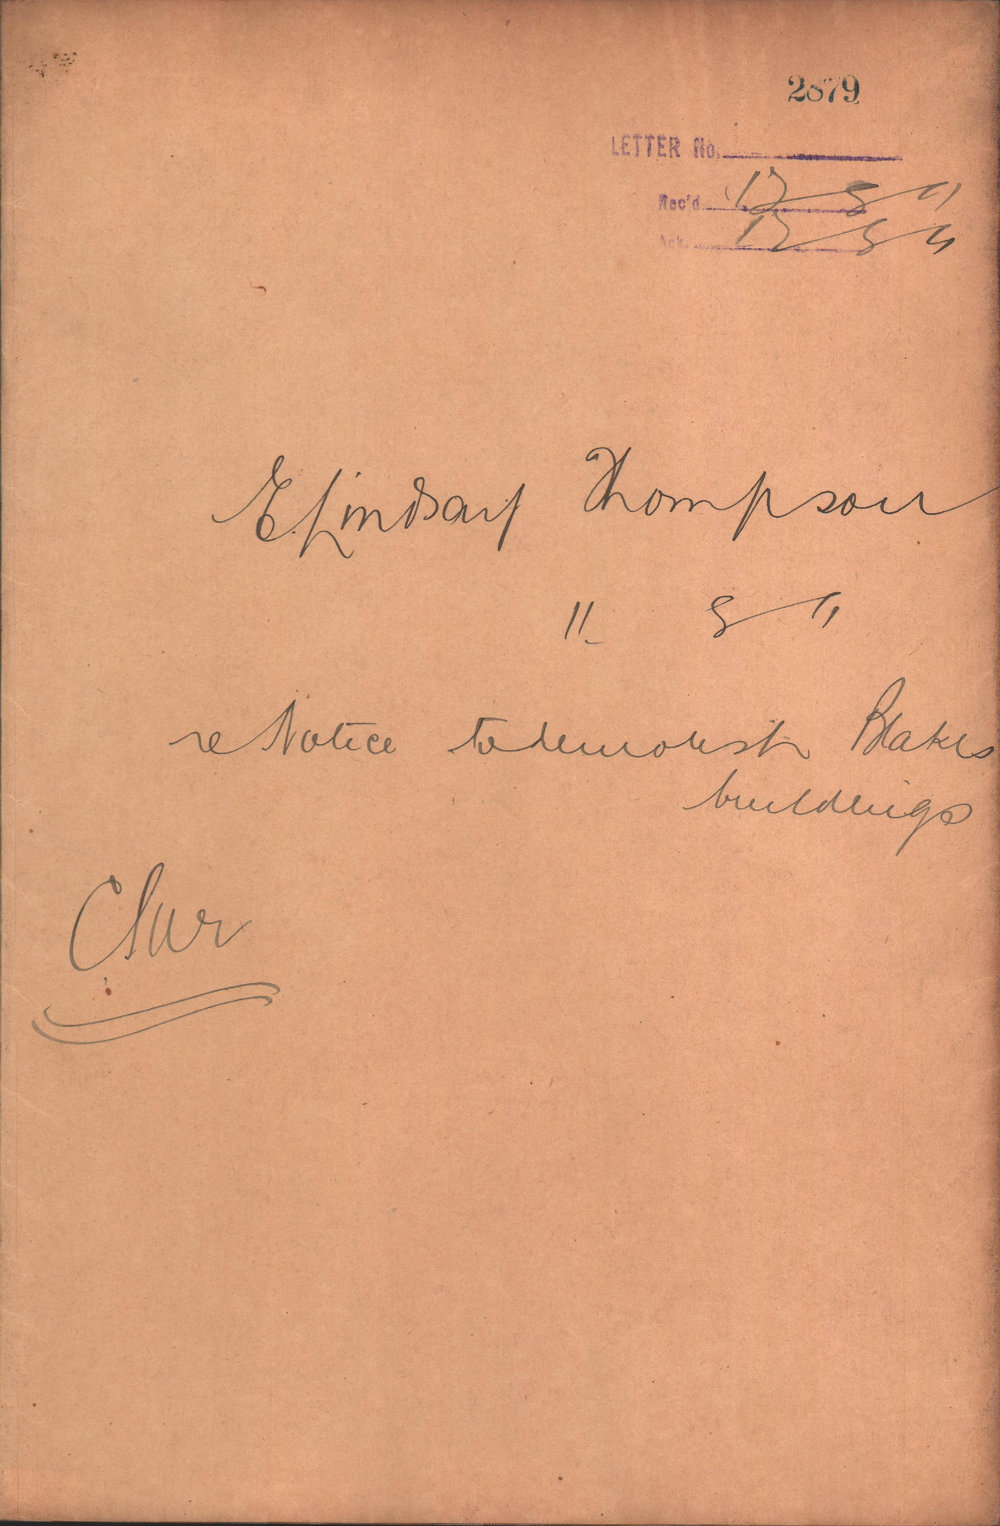 2879
LETTER No.
Rec'd 12 8 11
Ack. 12 8 11
E. Lindsay Thompson
11 8 11
re Notice to demolish Blakes
buildings